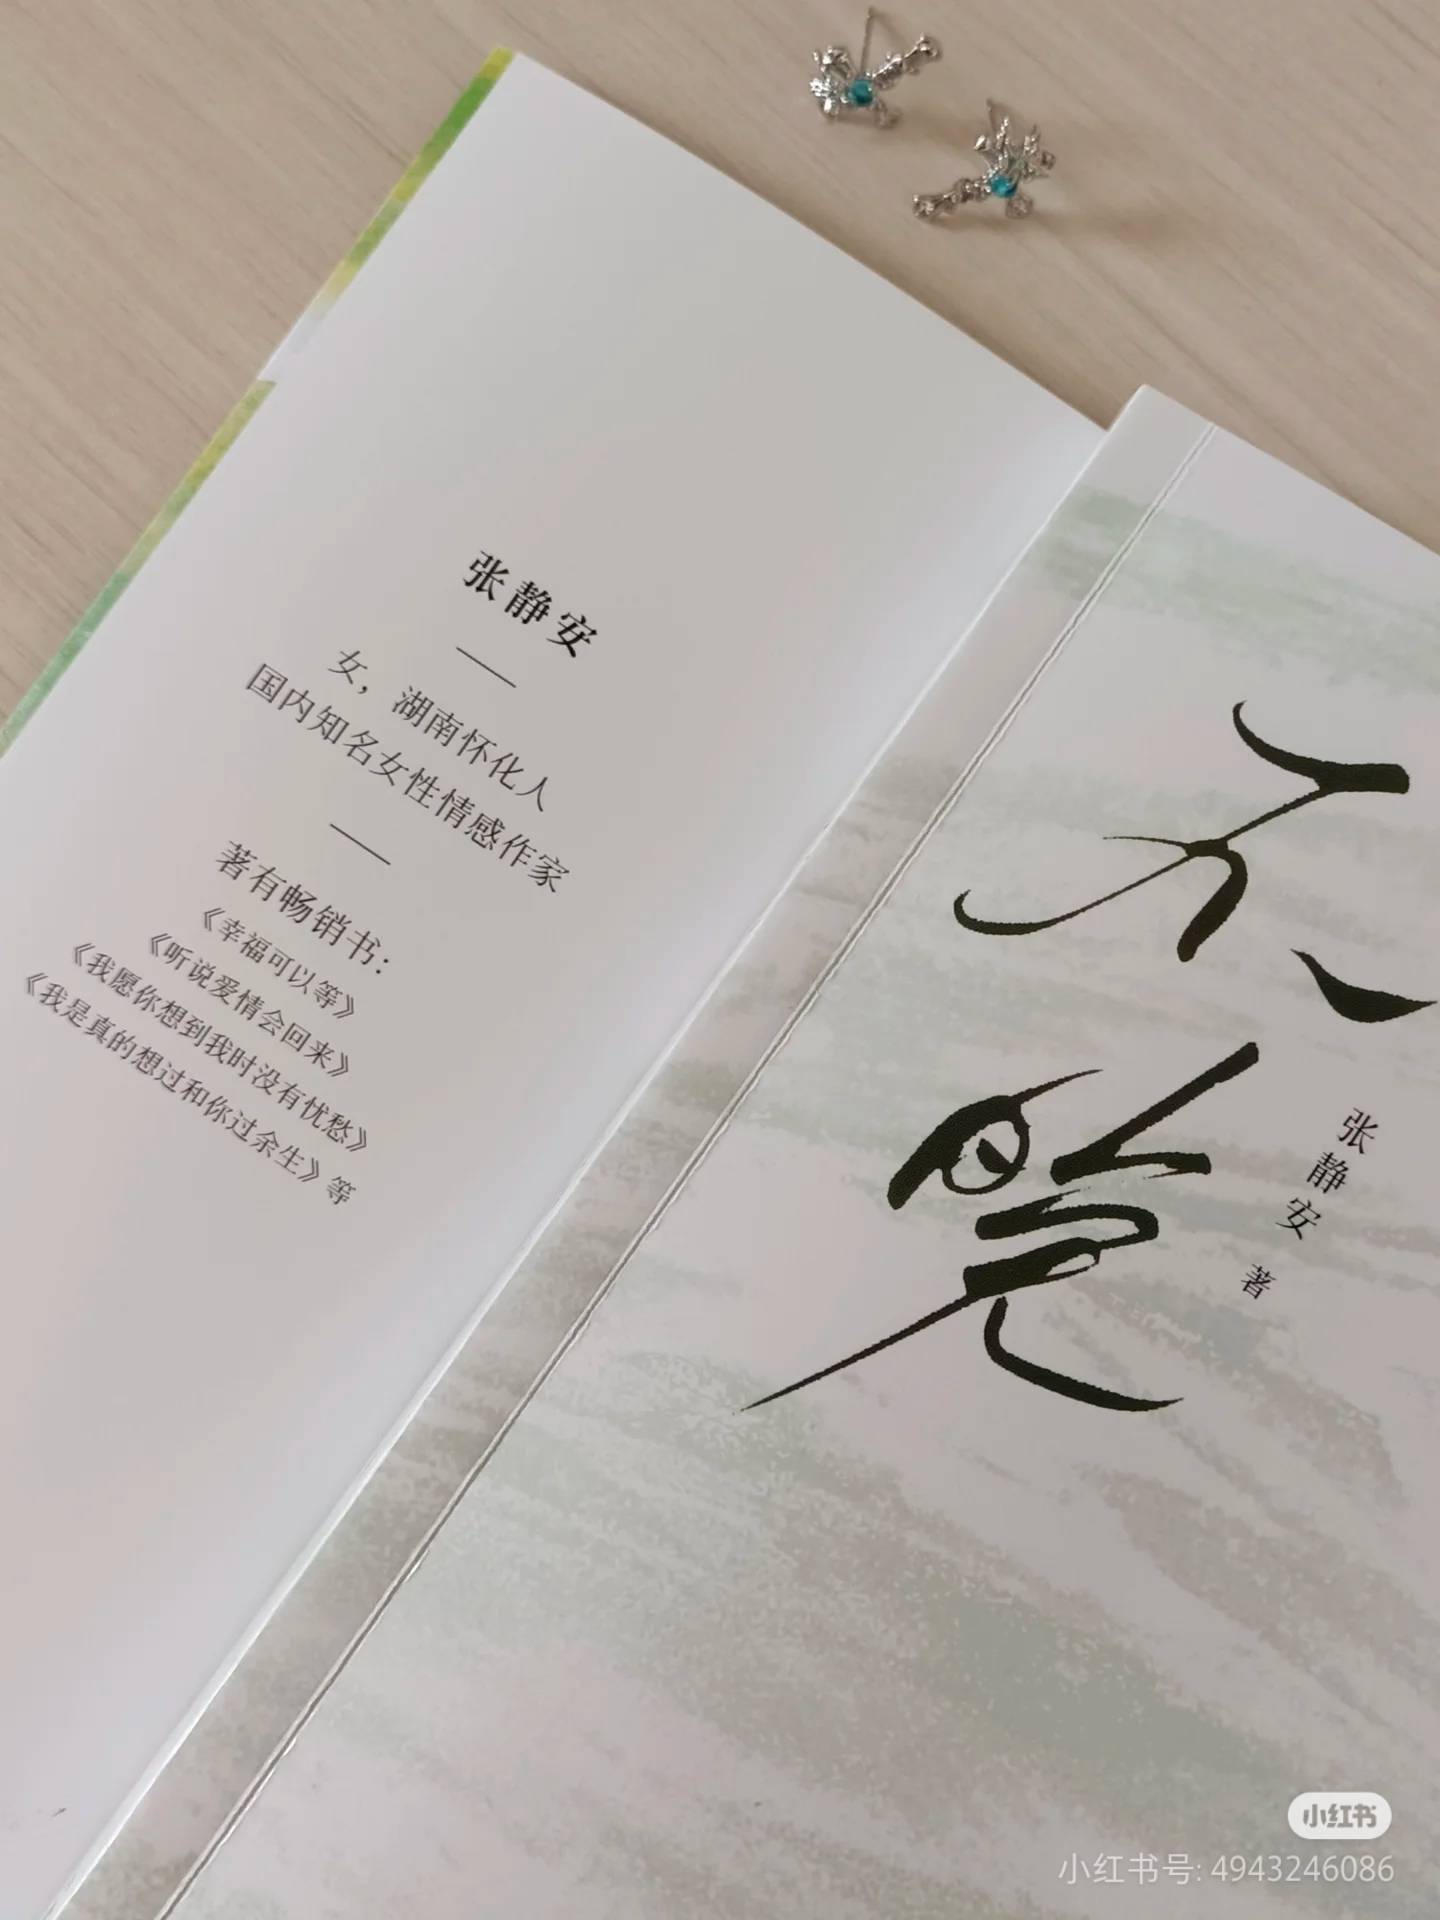 张静安
女，湖南怀化人
国内知名女性情感作家
著有畅销书：
《幸福可以等》
《听说爱情会回来》
《我愿你想到我时没有忧愁》
《我是真的想过和你过余生》等
不
觉
张静安 著
小红书
小红书号: 4943246086